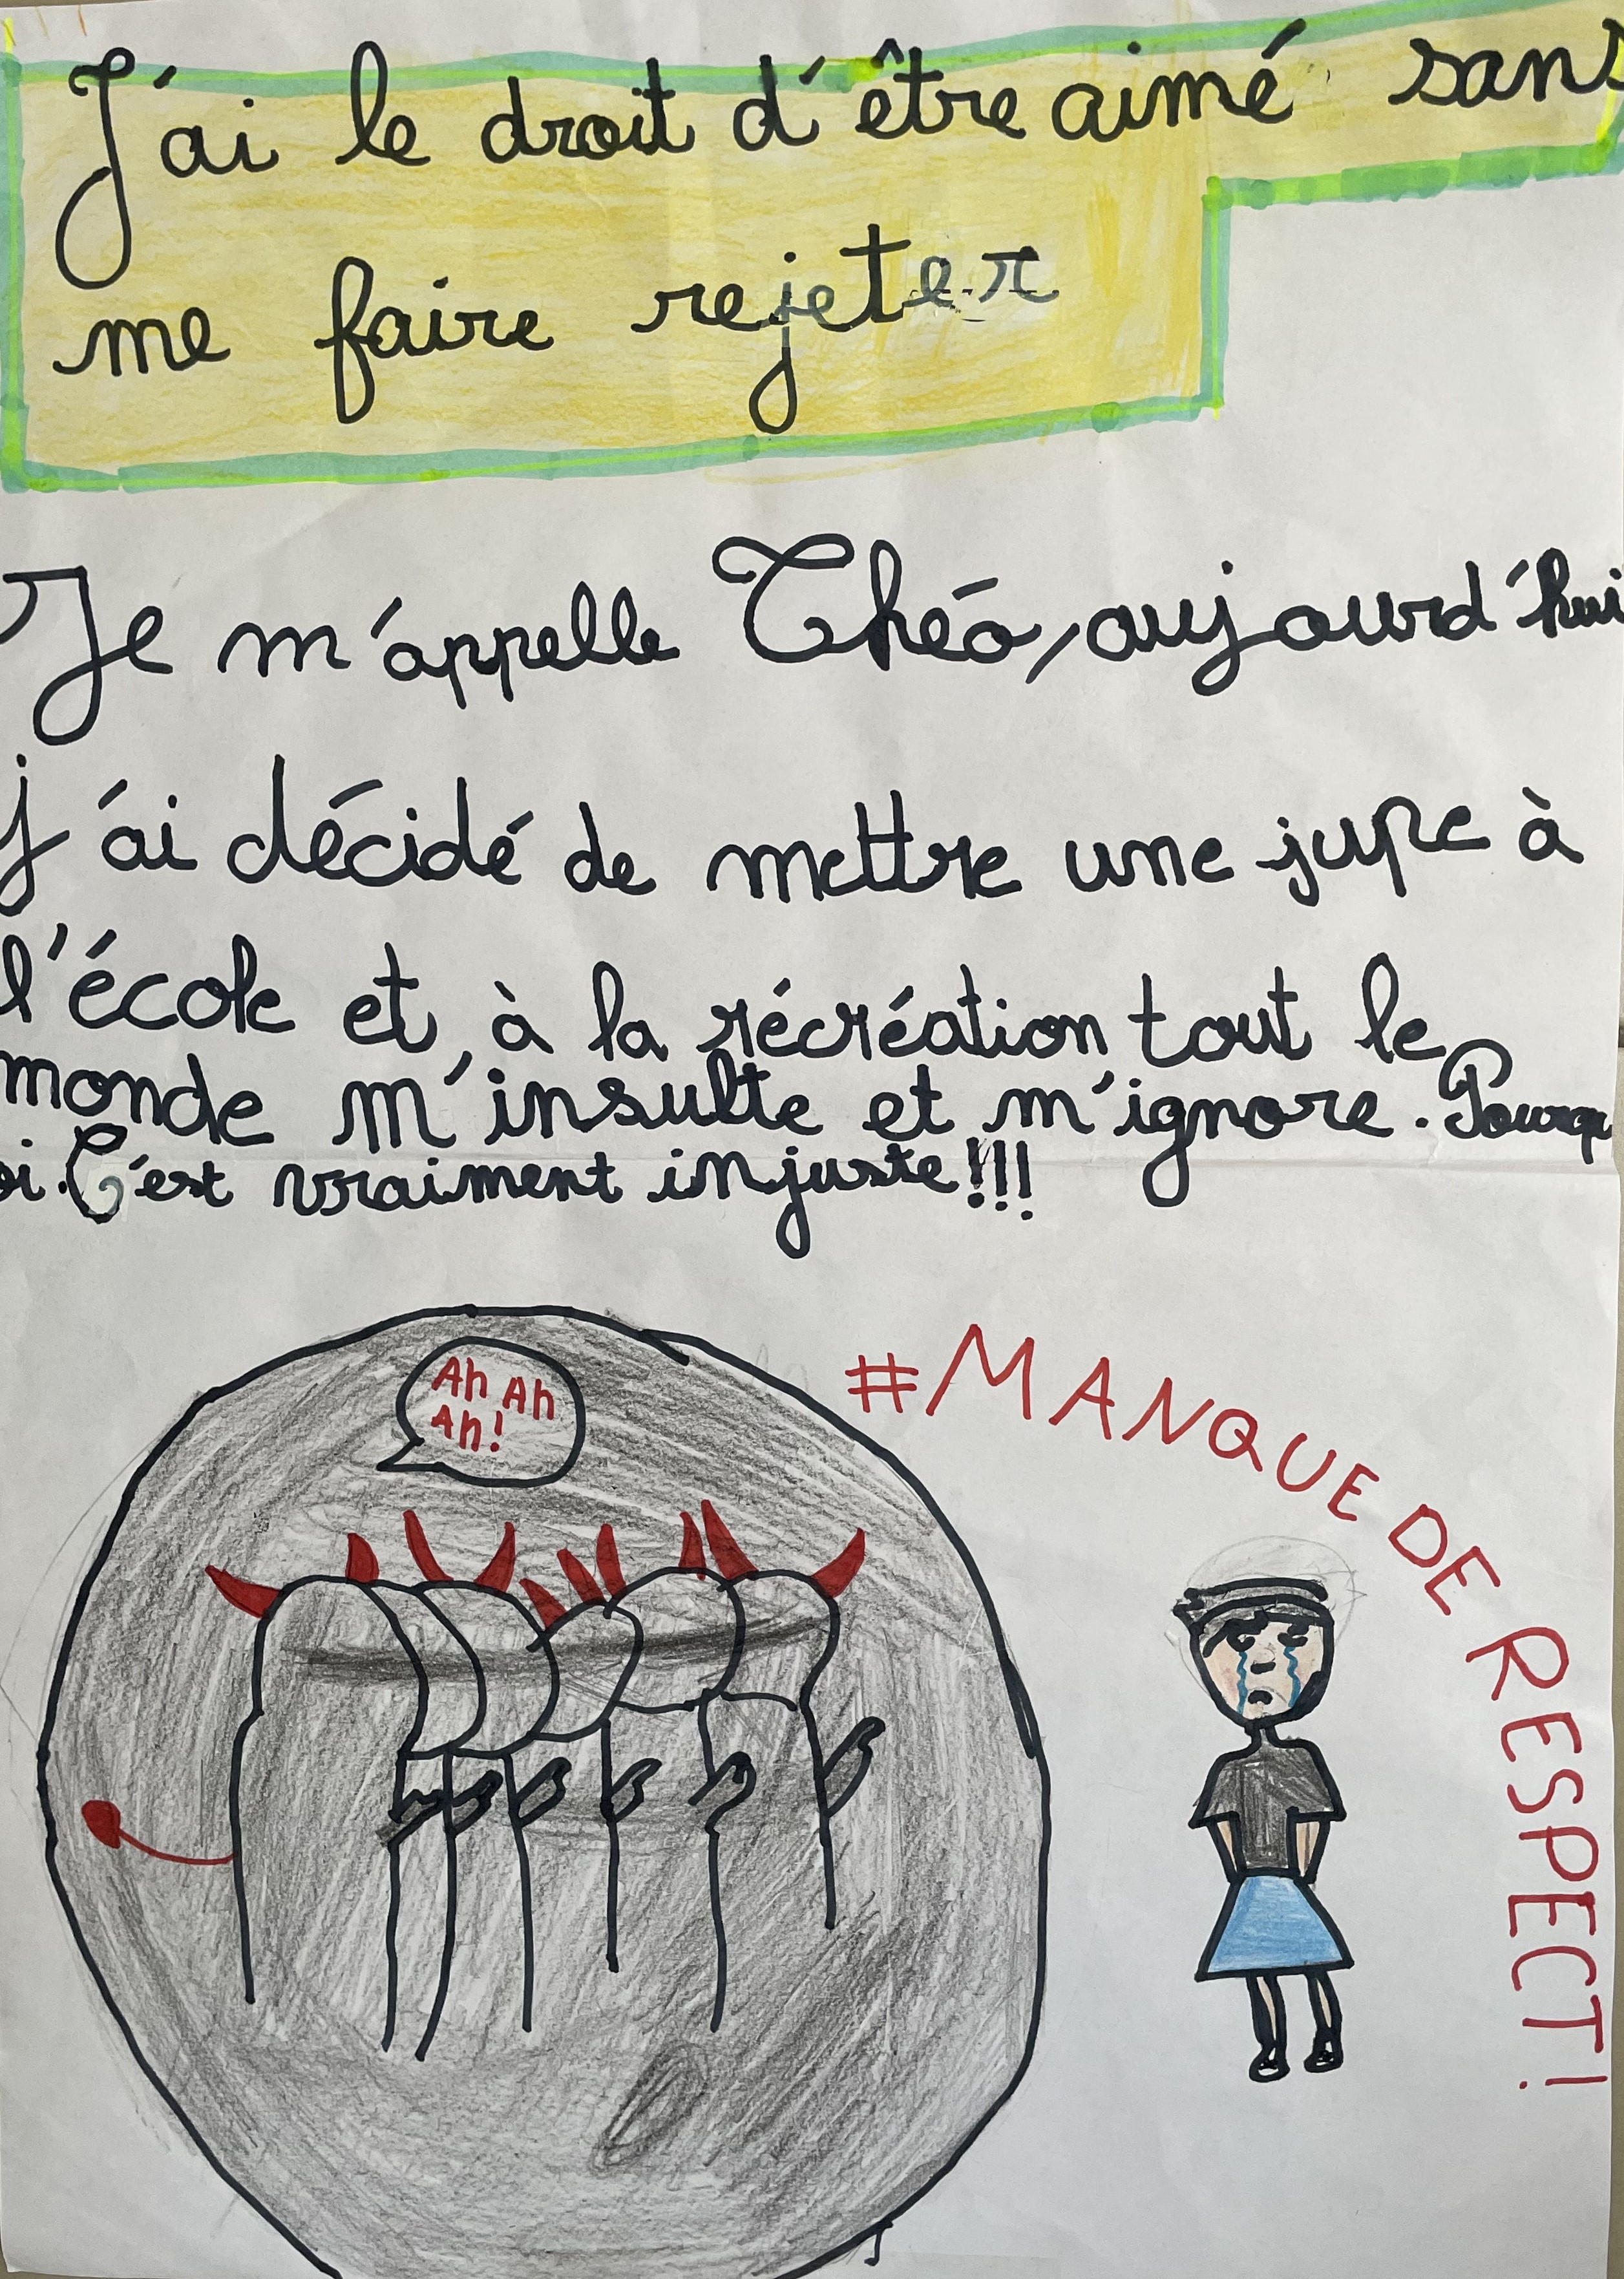 J'ai le droit d'être aimé sans
me faire rejeter
Je m'appelle Théo, aujourd'hui
j'ai décidé de mettre une jupe à
l'école et, à la récréation tout le
monde m'insulte et m'ignore. Pourqu
oi. C'est vraiment injuste!!!
Ah Ah
Ah!
#MANQUE DE RESPECT!